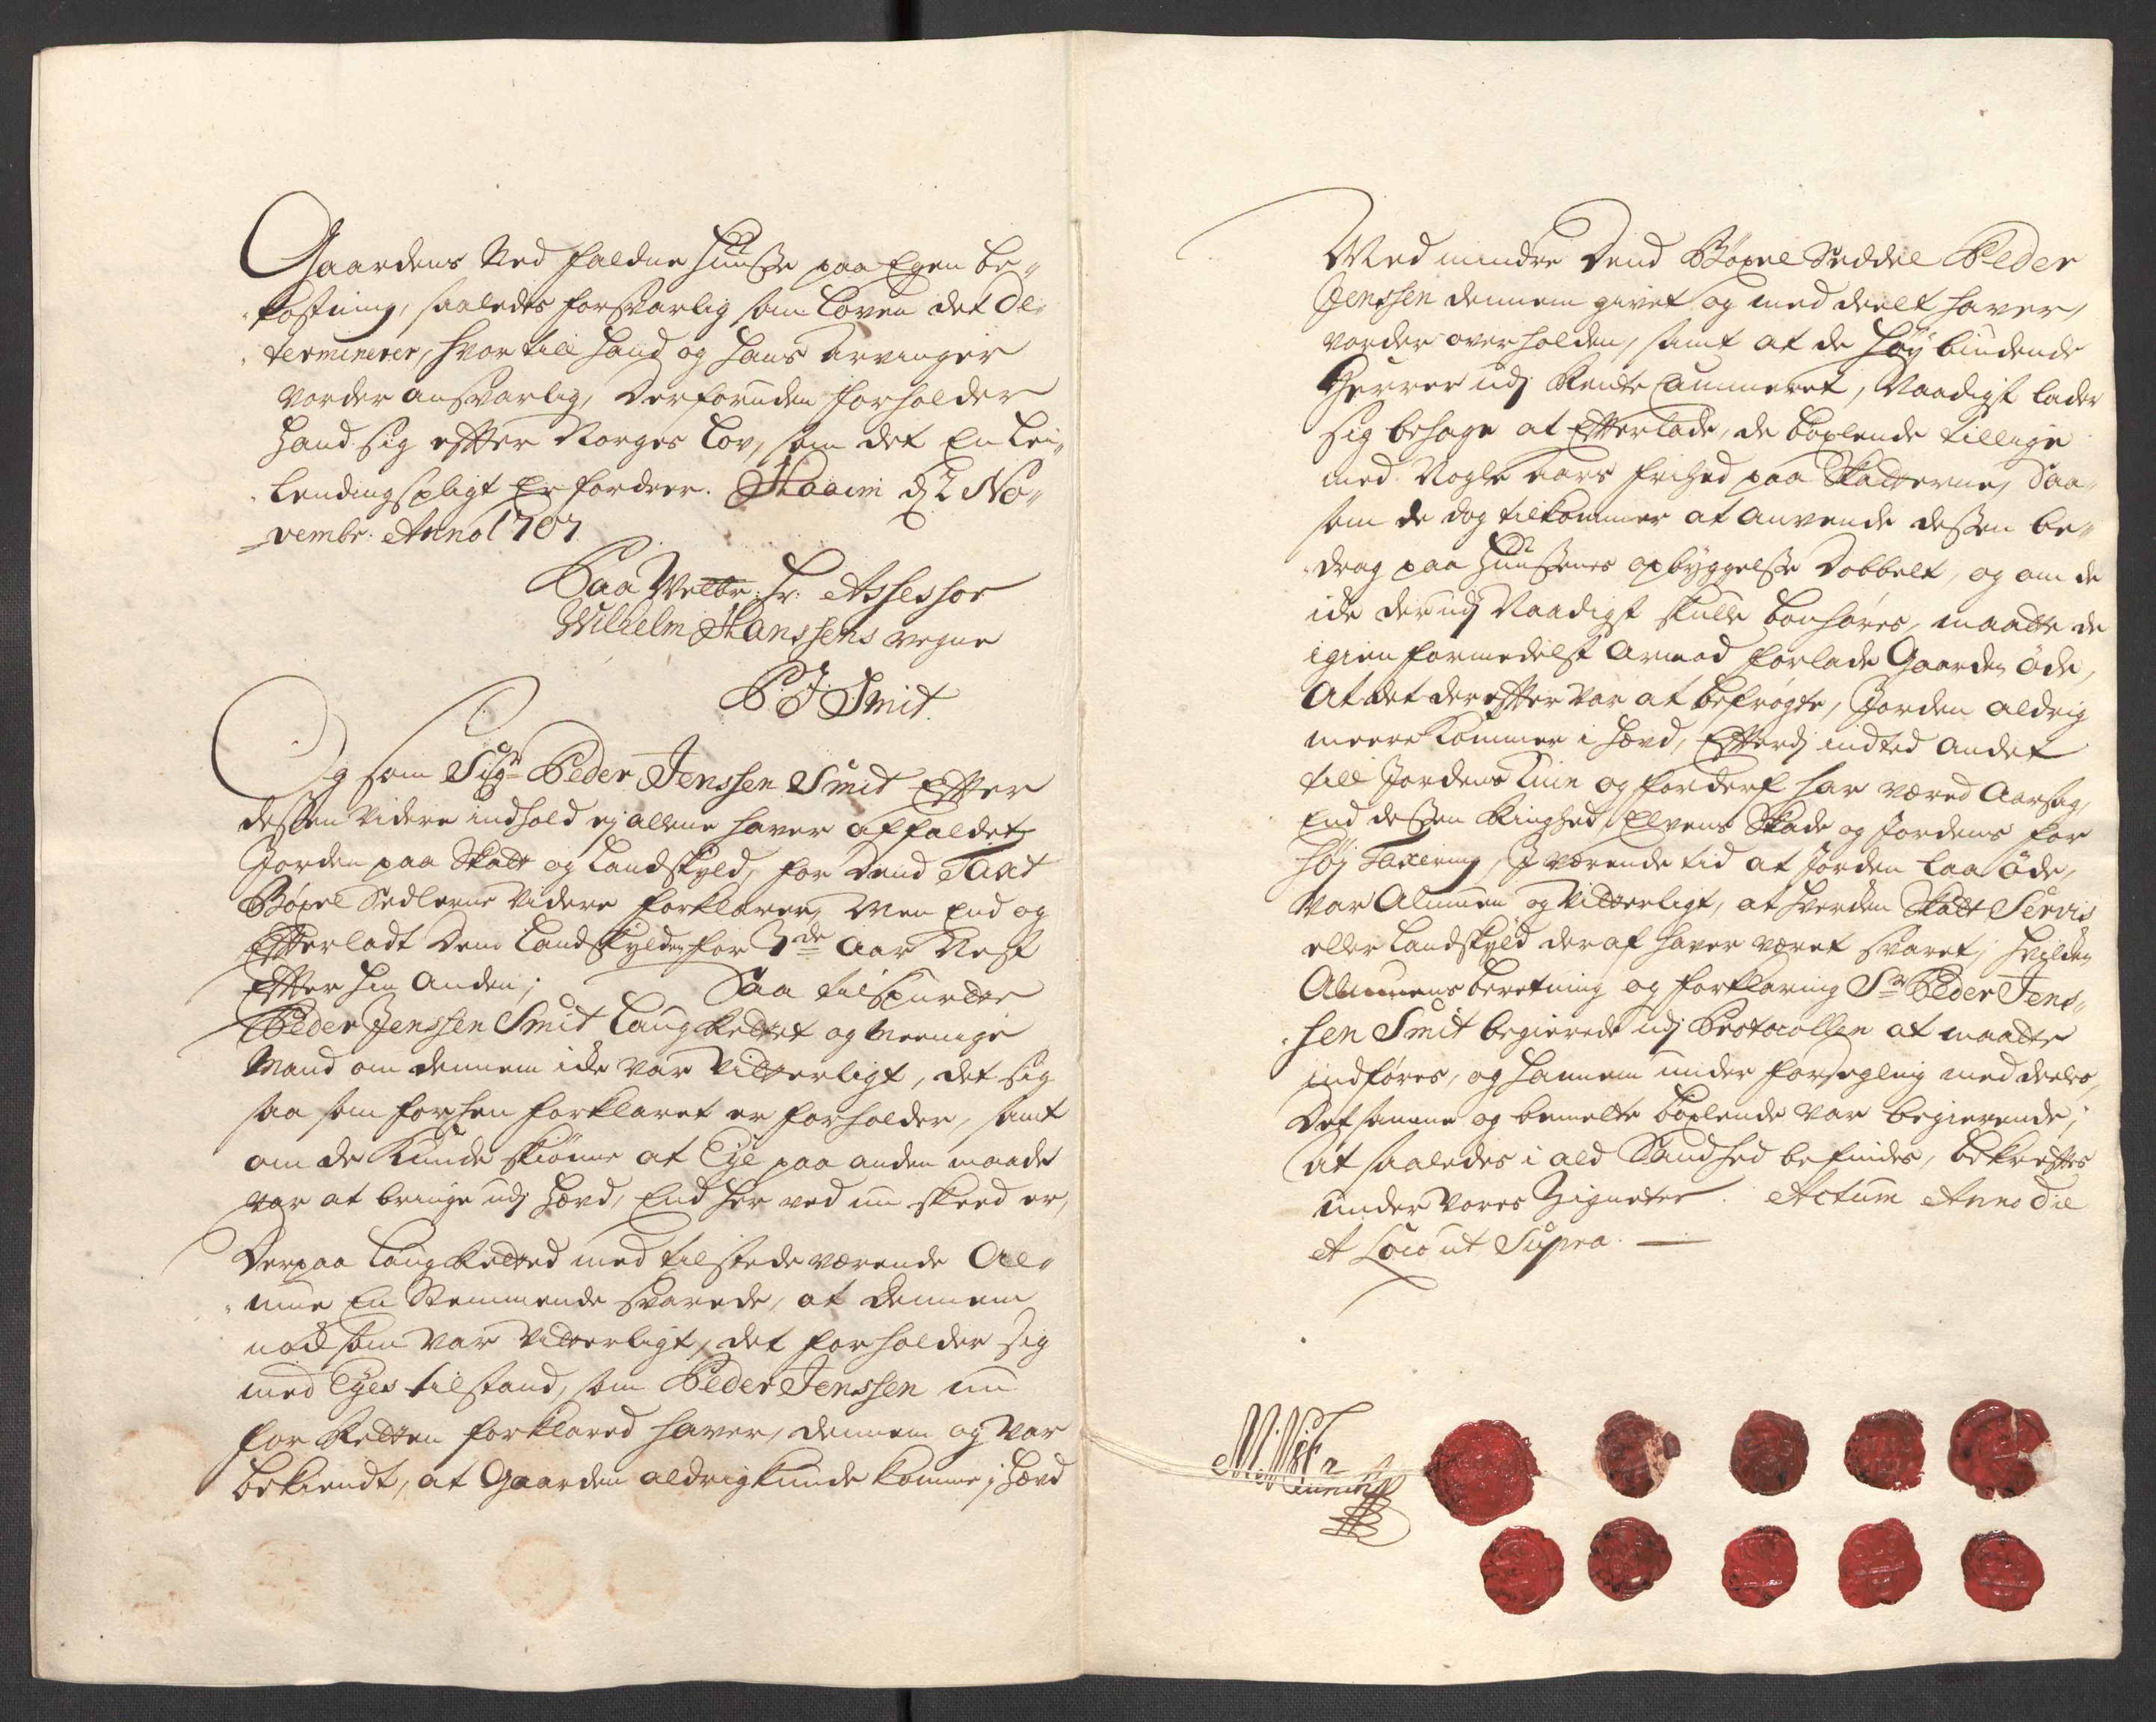 Gaardens Ned faldne Huusse paa Egen be-
kostning, saaledes forsvarlig som Loven det De-
terminerer, hvor till hand og hans Arvinger
vorder ansvarlig, Derforuden forholder
hand sig efter Norges Lov, som det En Lei-
lendings pligt Er fordrer. Hoeim d: 2 No-
vembr: Anno 1707.
Paa Welbr: Hr: Assessor
Wilhelm Hanssens vegne
P: J: Smit.
Og som Sigr Peder Jenssen Smit Efter
dessen videre indhold ej allene haver affaldet
Jorden paa Skatt og Landskyld, for dend Taxt
Böxel Sedlerne videre forklarer, Men End og
Efterladt dem Landskylden for 3de Aar Nest
Efter hin Anden; Saa tilspurdte
Peder Jenssen Smit Laug Rettet og meenige
Mand om dennem icke var vitterligt, det sig
saa som forhen forklaret er forholder, samt
om de kunde skiönne at Eje paa anden maade
var at bringe udj hævd, End her ved nu skeed er,
Derpaa Laug Retted med tilstede værende Al-
mue En Stemmende svarede, at dennem
nock som var vitterligt, det forholder sig
med Ejes tilstand, som Peder Jenssen nu
for Retten forklared haver, dennem og var
bekiendt, at Gaarden aldrig kunde komme j hævd
Med mindre Dend Böxel Seddel Peder
Jenssen dennem givet og med deelt haver,
vorder overholden, samt at de Höybiudende
Herrer udj Rente Cammeret, Naadigst lader
sig behage at Efterlade, de böxlende tillige
med Nogle aars frihed paa Skatterne, Saa-
som de dog tilkommer at anvende dessen be-
drag paa Huussenes opbyggelse Dobbelt, og om de
icke der udj Naadigst skulle bönhöres, maatte de
igien formedelst Armod forlade Gaarden öde,
At det derefter var at befrögte, Jorden aldrig
meere kommer i hævd, Efterdj indted andet
till Jordens Ruin og forderf har væred Aarsag,
End dessen Ringhed, Elvens Skade og Jordens for
höj Taxering, J værende tid at Jorden laa öde,
var Almuen og vitterligt, at hverden Skatt Servis
eller Landskyld deraf haver været svaret, hvilken
Almuens beretning og forklaring Sr Peder Jens-
sen Smit begierede udj Protocollen at maatte
indföres, og hannem under forsegling med deeles,
Det samme og bemelte böxlende var begierende;
At saaledes i ald Sandhed befindes, bekreftes
under Vores Zigneter. Actum Anno Die
et Loco ut Supra.